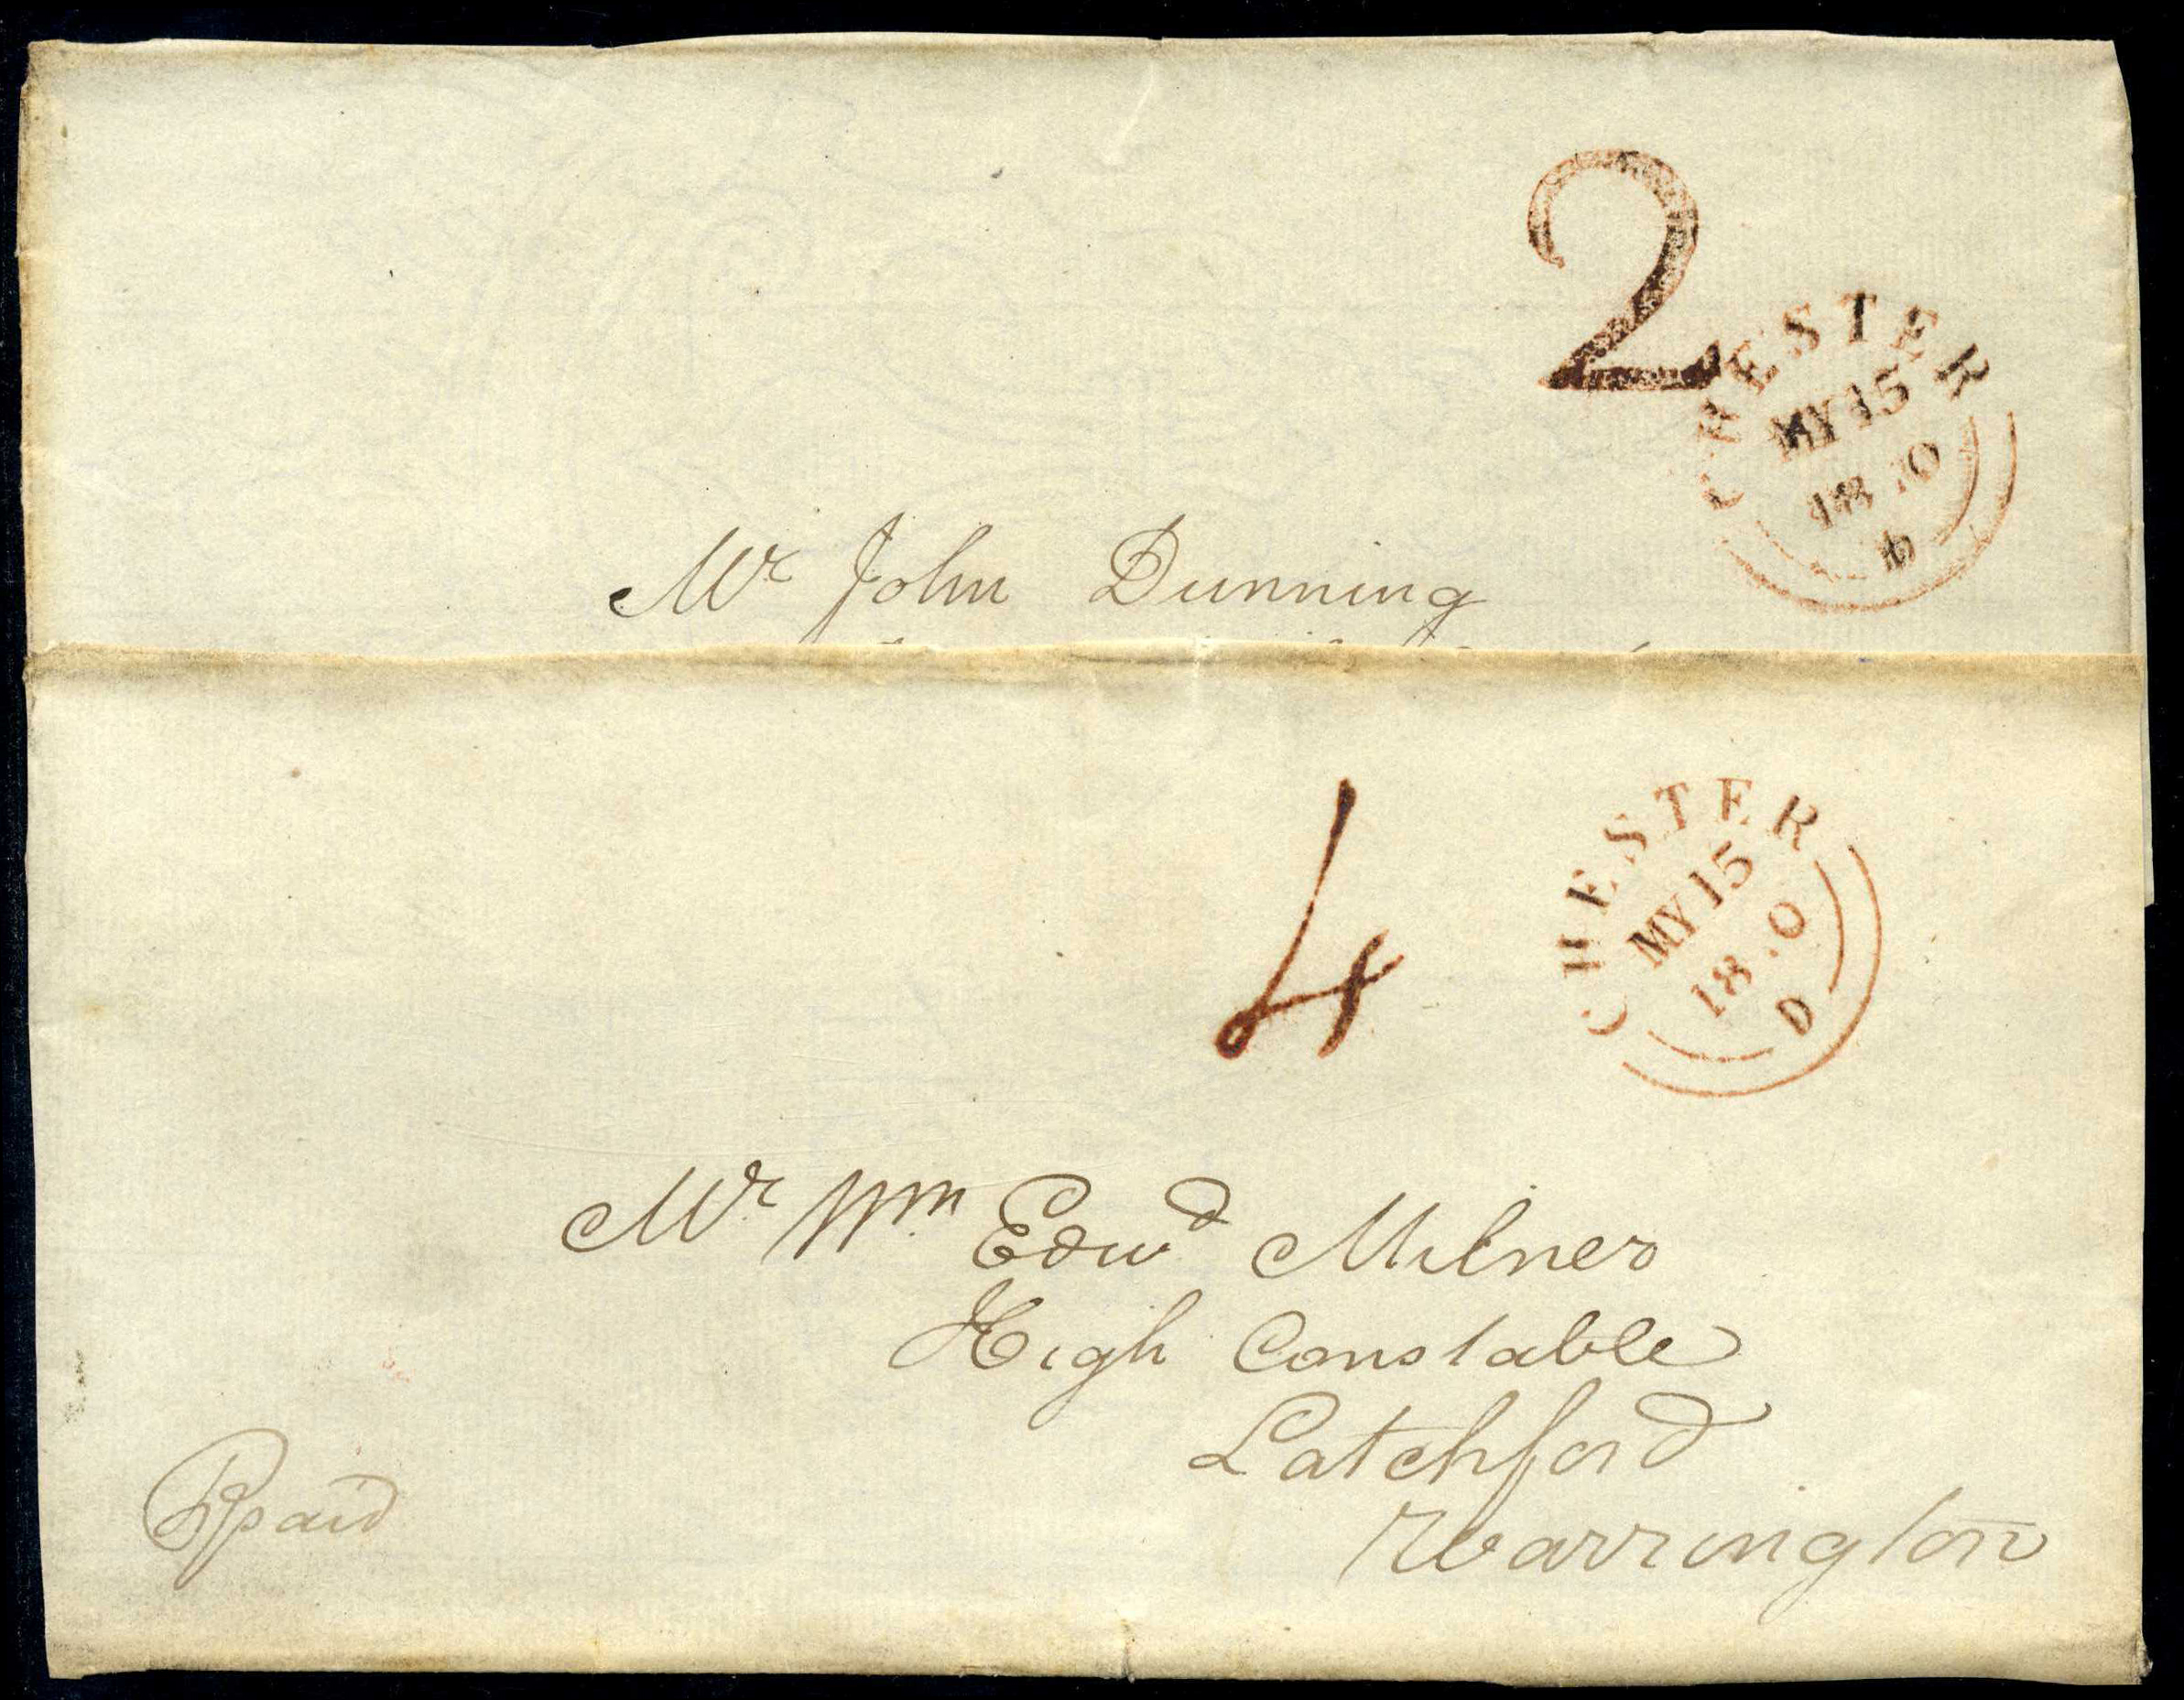 2
CHESTER
MY 15
18 0
Mr John Dunning
4
CHESTER
MY 15
18 0
D
Mr Wm Edwd Milner
High Constable
Latchford
Warrington
Ppaid